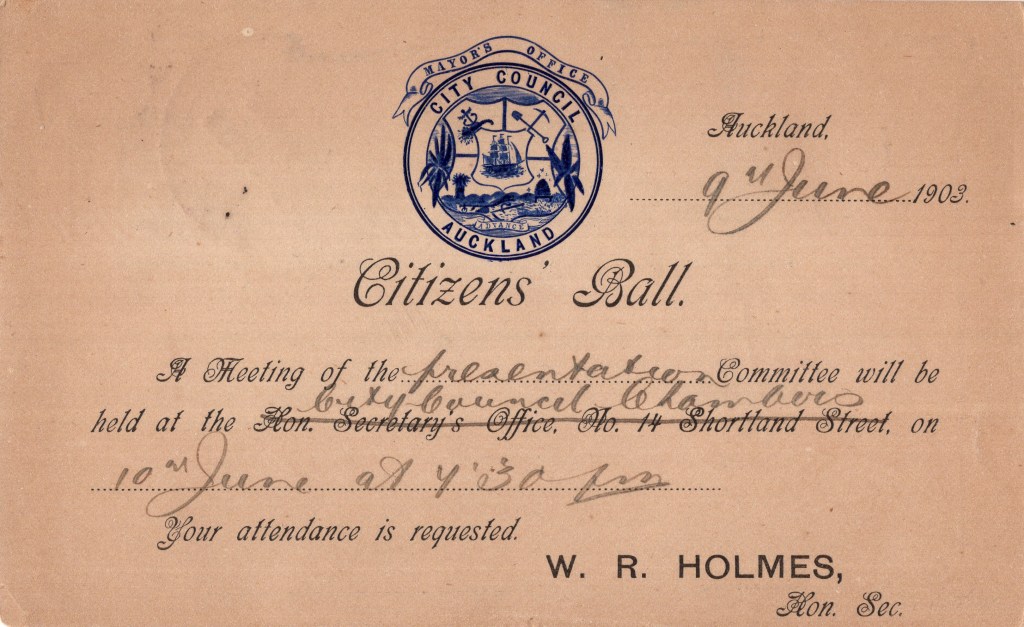 MAYOR'S OFFICE
CITY COUNCIL
ADVANCE
AUCKLAND
Auckland,
9th June 1903.
Citizens' Ball.
A Meeting of the presentation Committee will be
City Council Chambers
held at the Hon. Secretary's Office, No. 14 Shortland Street, on
10th June at 4.30 pm
Your attendance is requested.
W. R. HOLMES,
Hon. Sec.